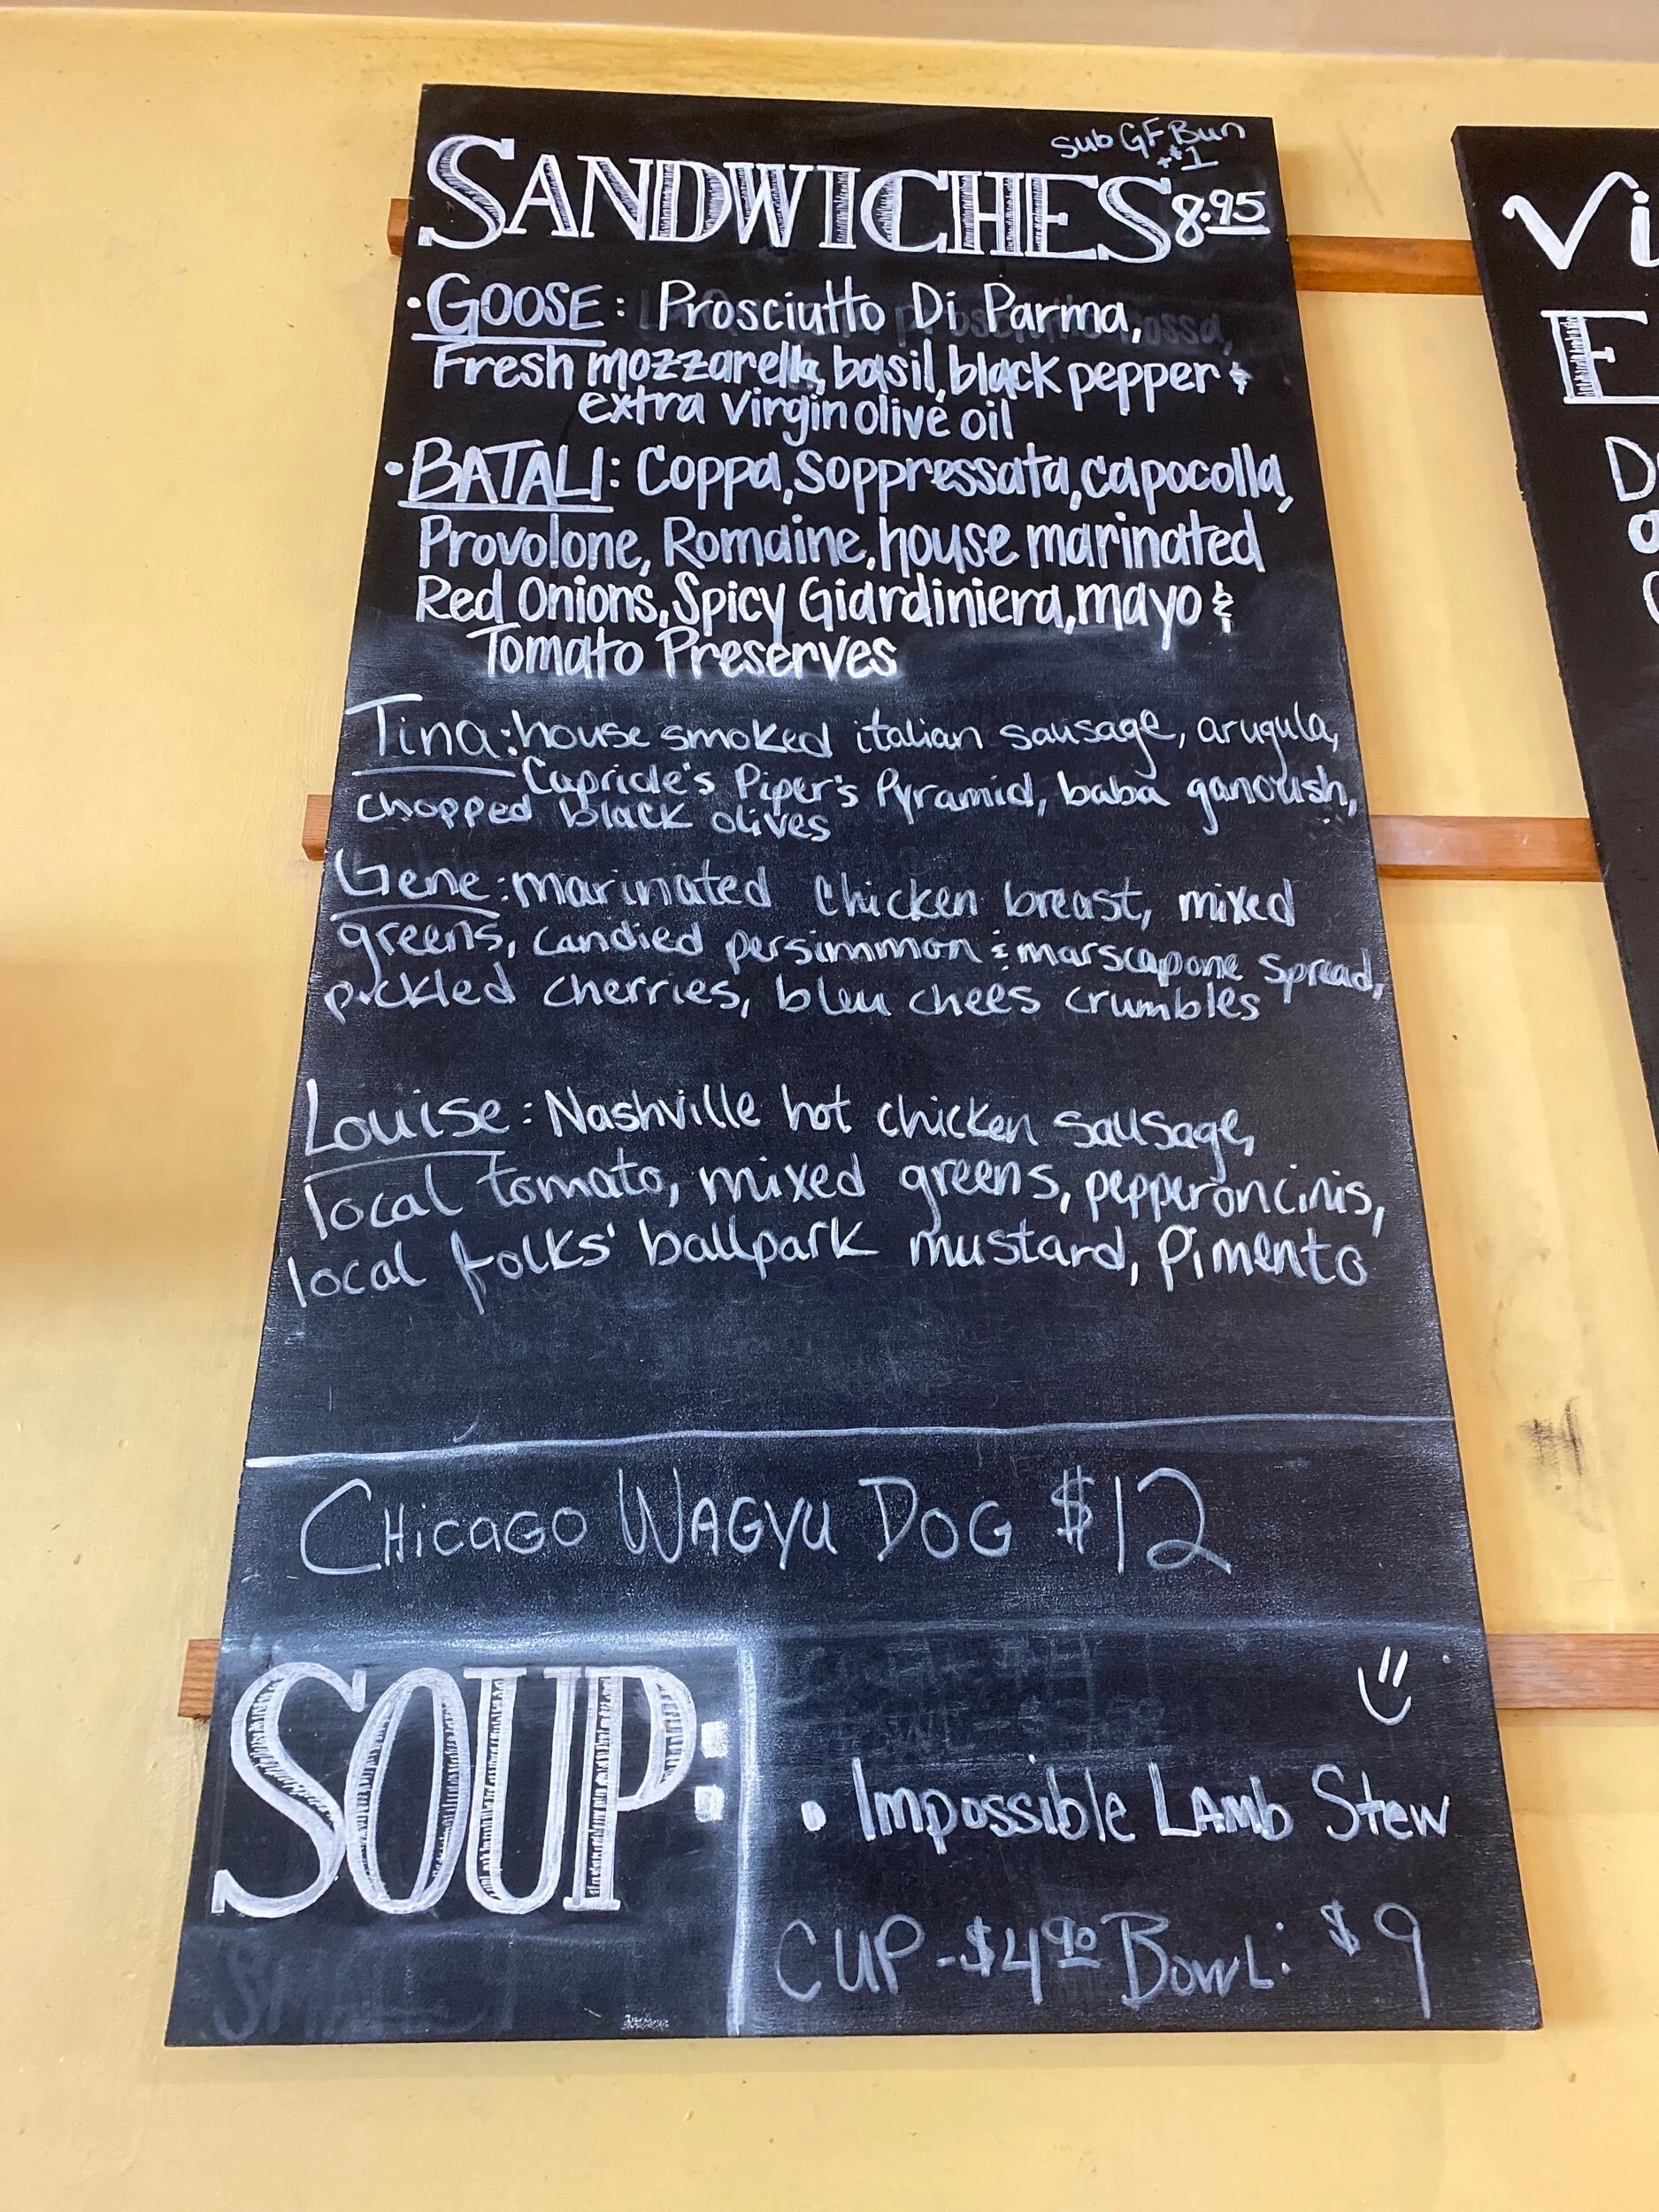 sub GF Bun
+$1
SANDWICHES 8.95
• GOOSE: Prosciutto Di Parma,
Fresh mozzarella, basil, black pepper &
extra virgin olive oil
• BATALI: Coppa, Soppressata, capocolla,
Provolone, Romaine, house marinated
Red Onions, Spicy Giardiniera, mayo &
Tomato Preserves
Tina: house smoked italian sausage, arugula,
Capriole's Piper's Pyramid, baba ganoush,
chopped black olives
Gene: marinated chicken breast, mixed
greens, candied persimmon & marscapone spread,
pickled cherries, bleu chees crumbles
Louise: Nashville hot chicken sausage,
local tomato, mixed greens, pepperoncinis,
local folks' ballpark mustard, Pimento
CHICAGO WAGYU DOG $12
SOUP:
• Impossible LAMb Stew
CUP - $4.90 BOWL: $9
Vi
E